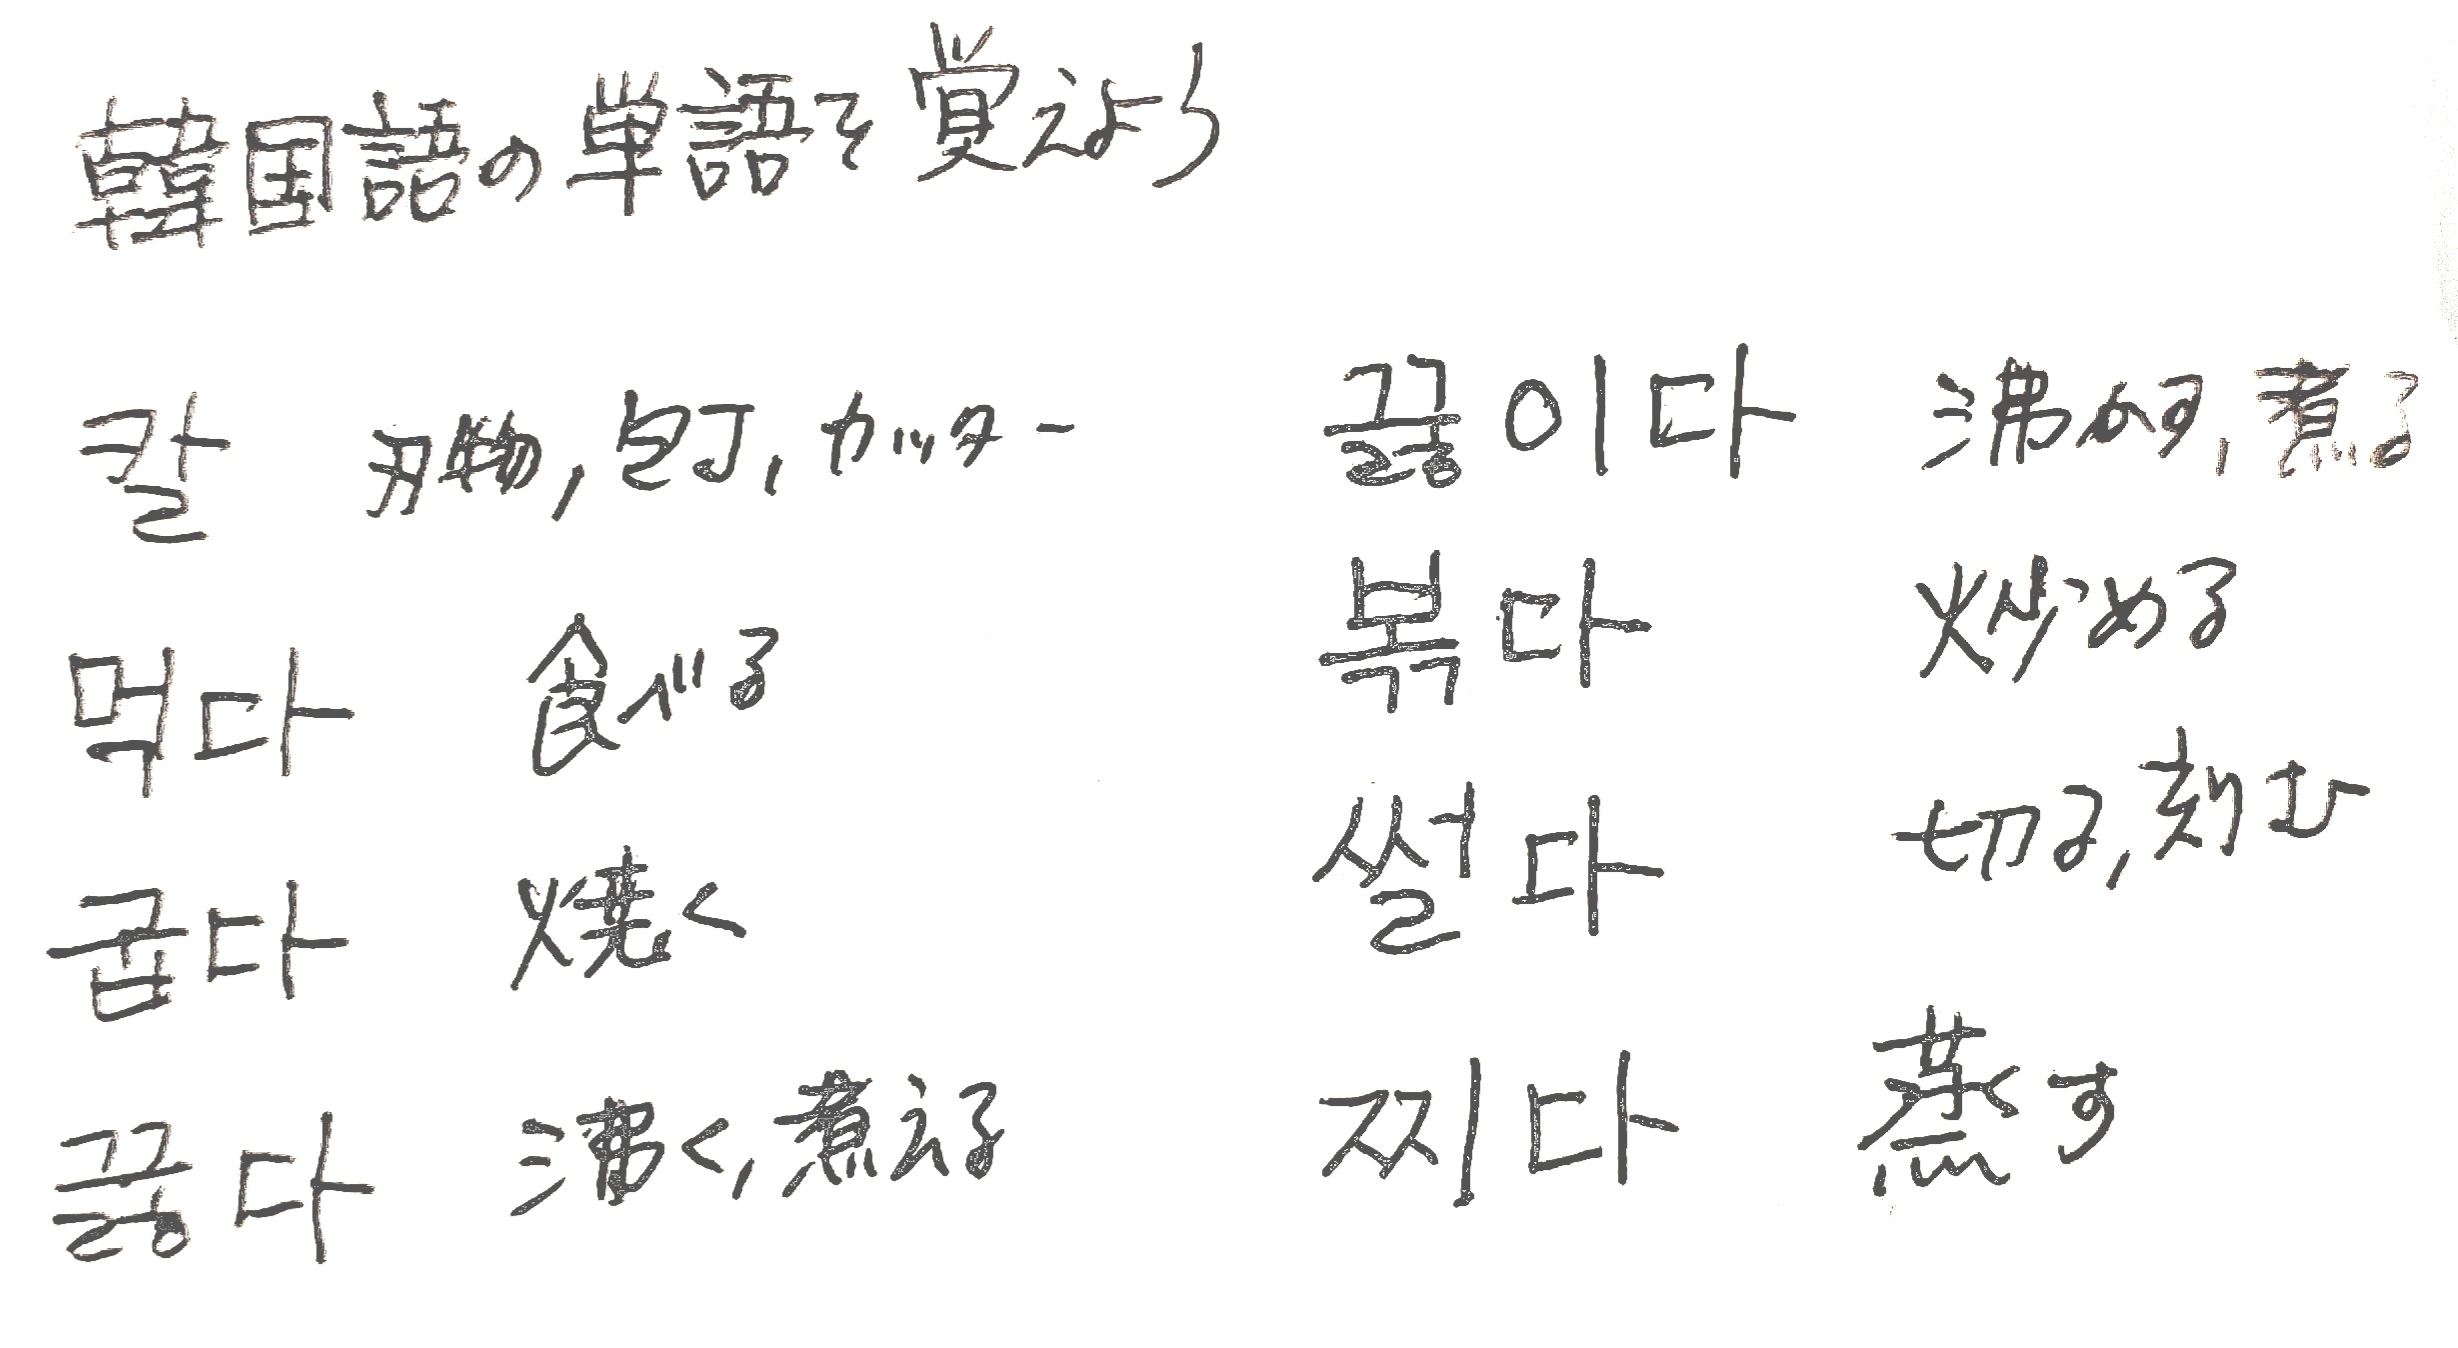 韓国語の単語を覚えよう
칼 刃物,包丁,カッター
먹다 食べる
굽다 焼く
끓다 沸く,煮える
끓이다 沸かす,煮る
볶다 炒める
썰다 切る,刻む
찌다 蒸す